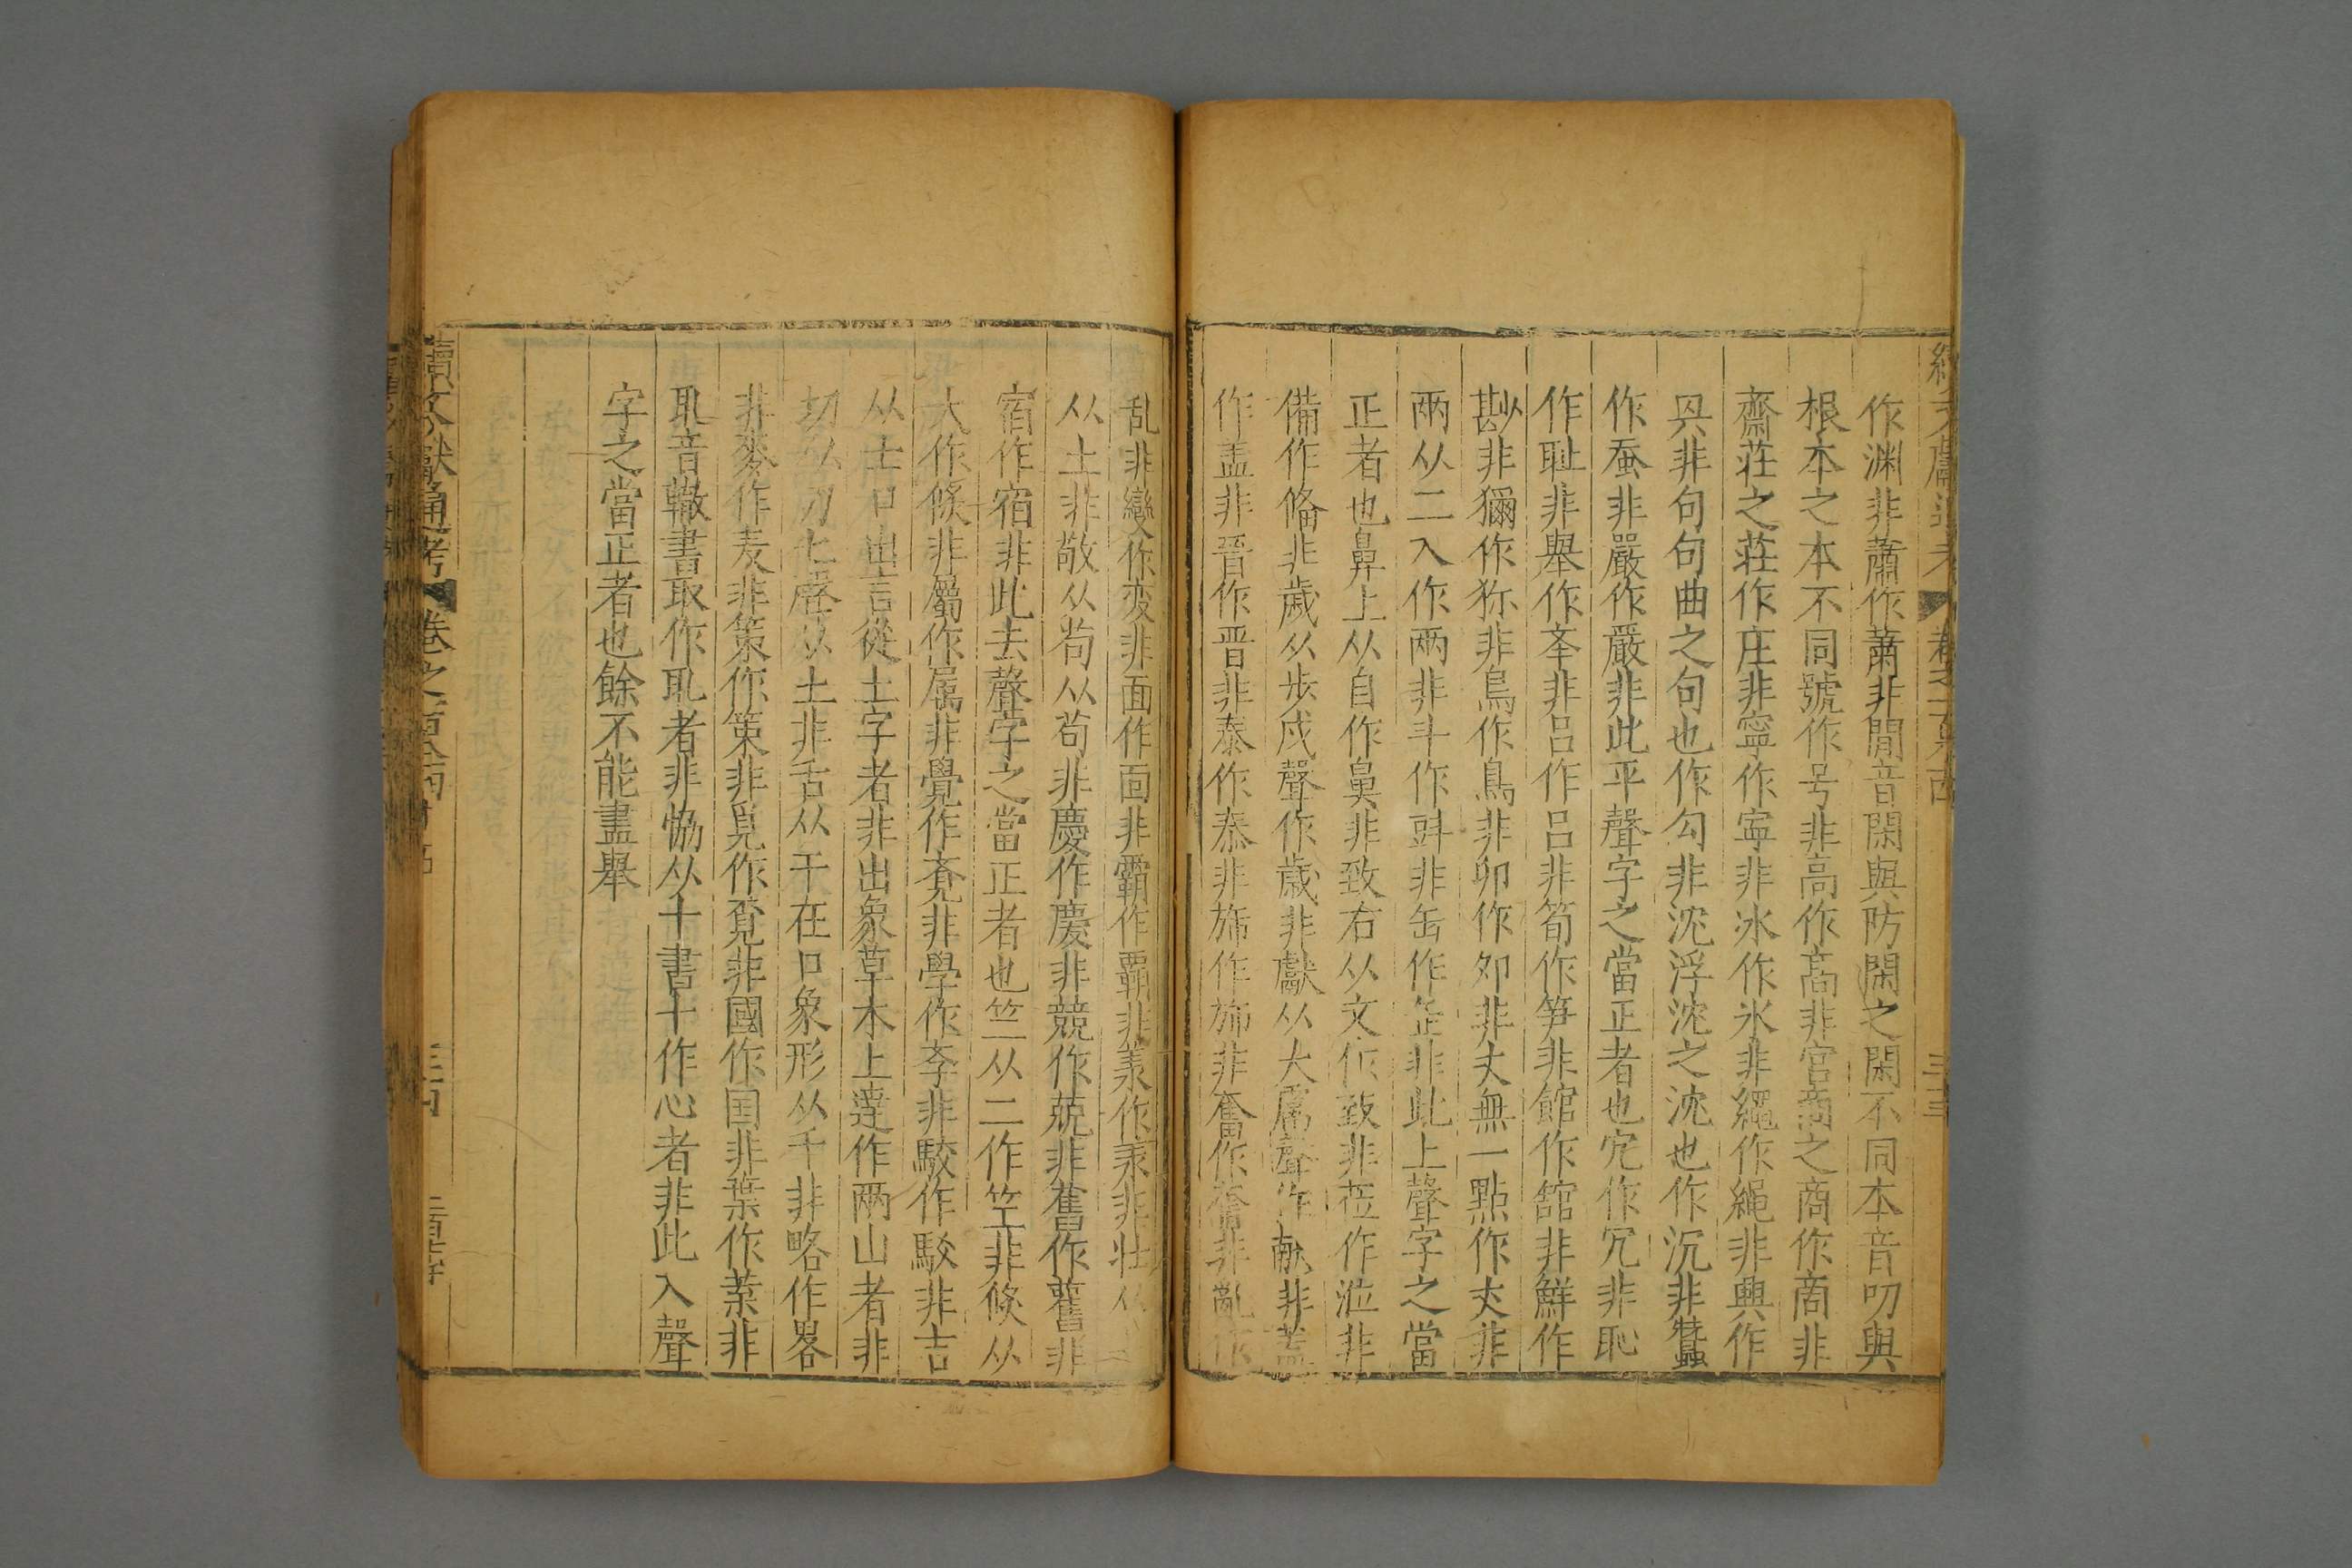 作渊非蕭作䔥非閒音閑與防閑之閑不同本音叨與
根本之本不同號作号非高作髙非宮商之商作啇非
齋莊之莊作庄非寧作寕非冰作氷非繩作縄非興作
㒷非句句曲之句也作勾非沈浮沈之沈也作沉非蠶
作蚕非嚴作嚴非此平聲字之當正者也宂作冗非恥
作耻非舉作㪯非呂作吕非筍作笋非館作舘非鮮作
尠非獮作狝非鳥作鳥非卯作夘非丈無一點作𠀋非
兩从二入作両非斗作㪷非缶作𦈢非此上聲字之當
正者也鼻上从自作鼻非致右从文作致非莅作涖非
備作俻非歲从步戌聲作歳非獻从犬鬳聲作献非蓋
作盖非晉作晋非泰作㤗非旆作斾非奮作奮非亂作
乱非變作変非面作靣非霸作覇非羕作羕非壯从
从土非敬从茍从苟非慶作慶非競作竸非舊作舊非
宿作宿非此去聲字之當正者也竺从二作笁非倏从
犬作倐非屬作属非覺作斍非學作斈非駮作駁非吉
从士口出言從土字者非出象草木上達作兩山者非
切从刀七聲从土非舌从干在口象形从千非略作畧
非麥作麦非策作筞非覓作覔非國作囯非葉作葉非
耴音輙書取作耴者非協从十書十作心者非此入聲
字之當正者也餘不能盡舉
續文獻通考 卷之一百八十四 三十四